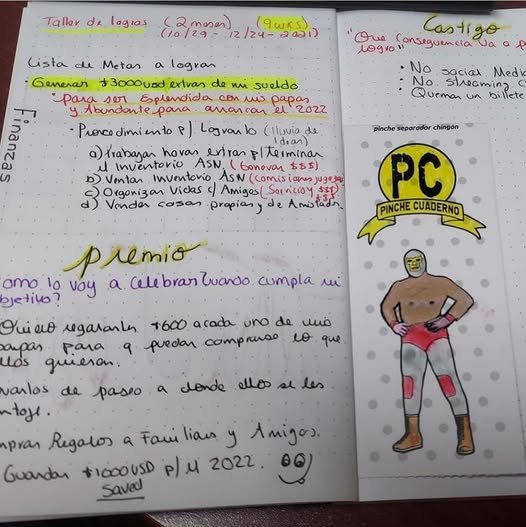 Taller de logros (2 meses) (9 wks)
(10/29 - 12/24 - 2021)
Lista de Metas a lograr
· Generar $3000 usd extras de mi sueldo
"para ser esplendida con mis papas
y abundante para arrancar el 2022
Finanzas
· Procedimiento p/ Lograrlo (lluvia de
ideas)
a) trabajar horas extras p/ Terminar
el inventorio ASN (Generar $$$)
b) Vender Inventorio ASN (comisiones
c) Organizar Vidas c/ Amigos (Servicio y $$$)
$$$
d) Vender cosas propias y de Amistades
premio
omo lo voy a celebrar Cuando cumpla mi
bjetivo?
Quiero regalarles $600 a cada uno de mis
papas para q puedan comprarse lo que
llos quieran.
varlos de paseo a donde ellos se les
ntoje.
mprar Regalos a Familiares y Amigos.
Guardar $1000 USD p/ el 2022.
Saved
Castigo
"Que consecuencia va a
logro"
· No social Medi
· No streaming
· Quemar un billete
pinche separador chingón
PC
PINCHE CUADERNO